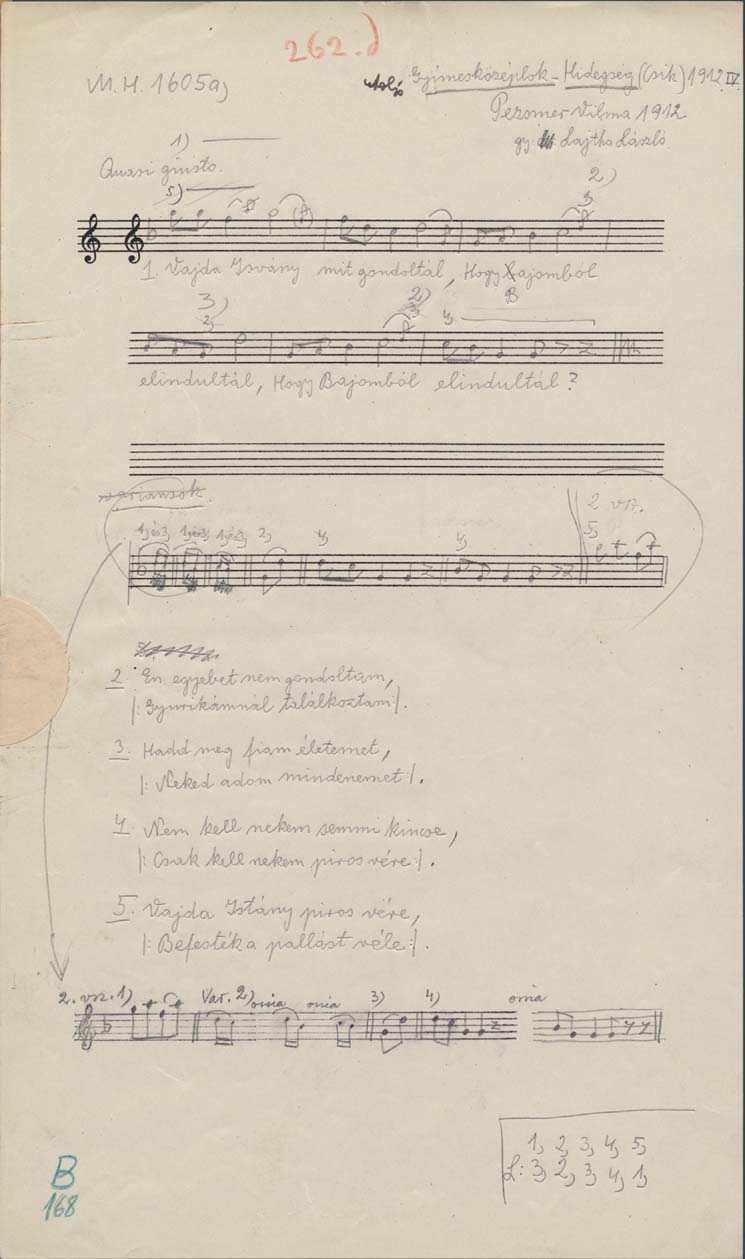 262.)
M.H. 1605a)
utolsó Gyimesközéplok - Hidegség (Csik) 1912 IV
Pezomer Vilma 1912
gy. Lajtha László
1)
Quasi giusto.
5)
2)
3
1. Vajda Isvány mit gondoltál, Hogy Bajomból
B
3)
2,
2)
3
4,
elindultál, Hogy Bajomból elindultál?
variánsok
2 vsz.
1, és 3, 1, és 3, 1, és 3, 2, 4, 4, 5,
2. Én egyebet nem gondoltam,
|: Gyurikámnál találkoztam :|.
3. Hadd meg fiam életemet,
|: Neked adom mindenemet :|.
4. Nem kell nekem semmi kincse,
|: Csak kell nekem piros vére :|.
5. Vajda Istány piros vére,
|: Befesték a pallást véle :|.
2. vsz. 1) Var. 2) ossia ossia 3) 4) ossia
1, 2, 3, 4, 5,
L: 3, 2, 3, 4, 1,
B
168